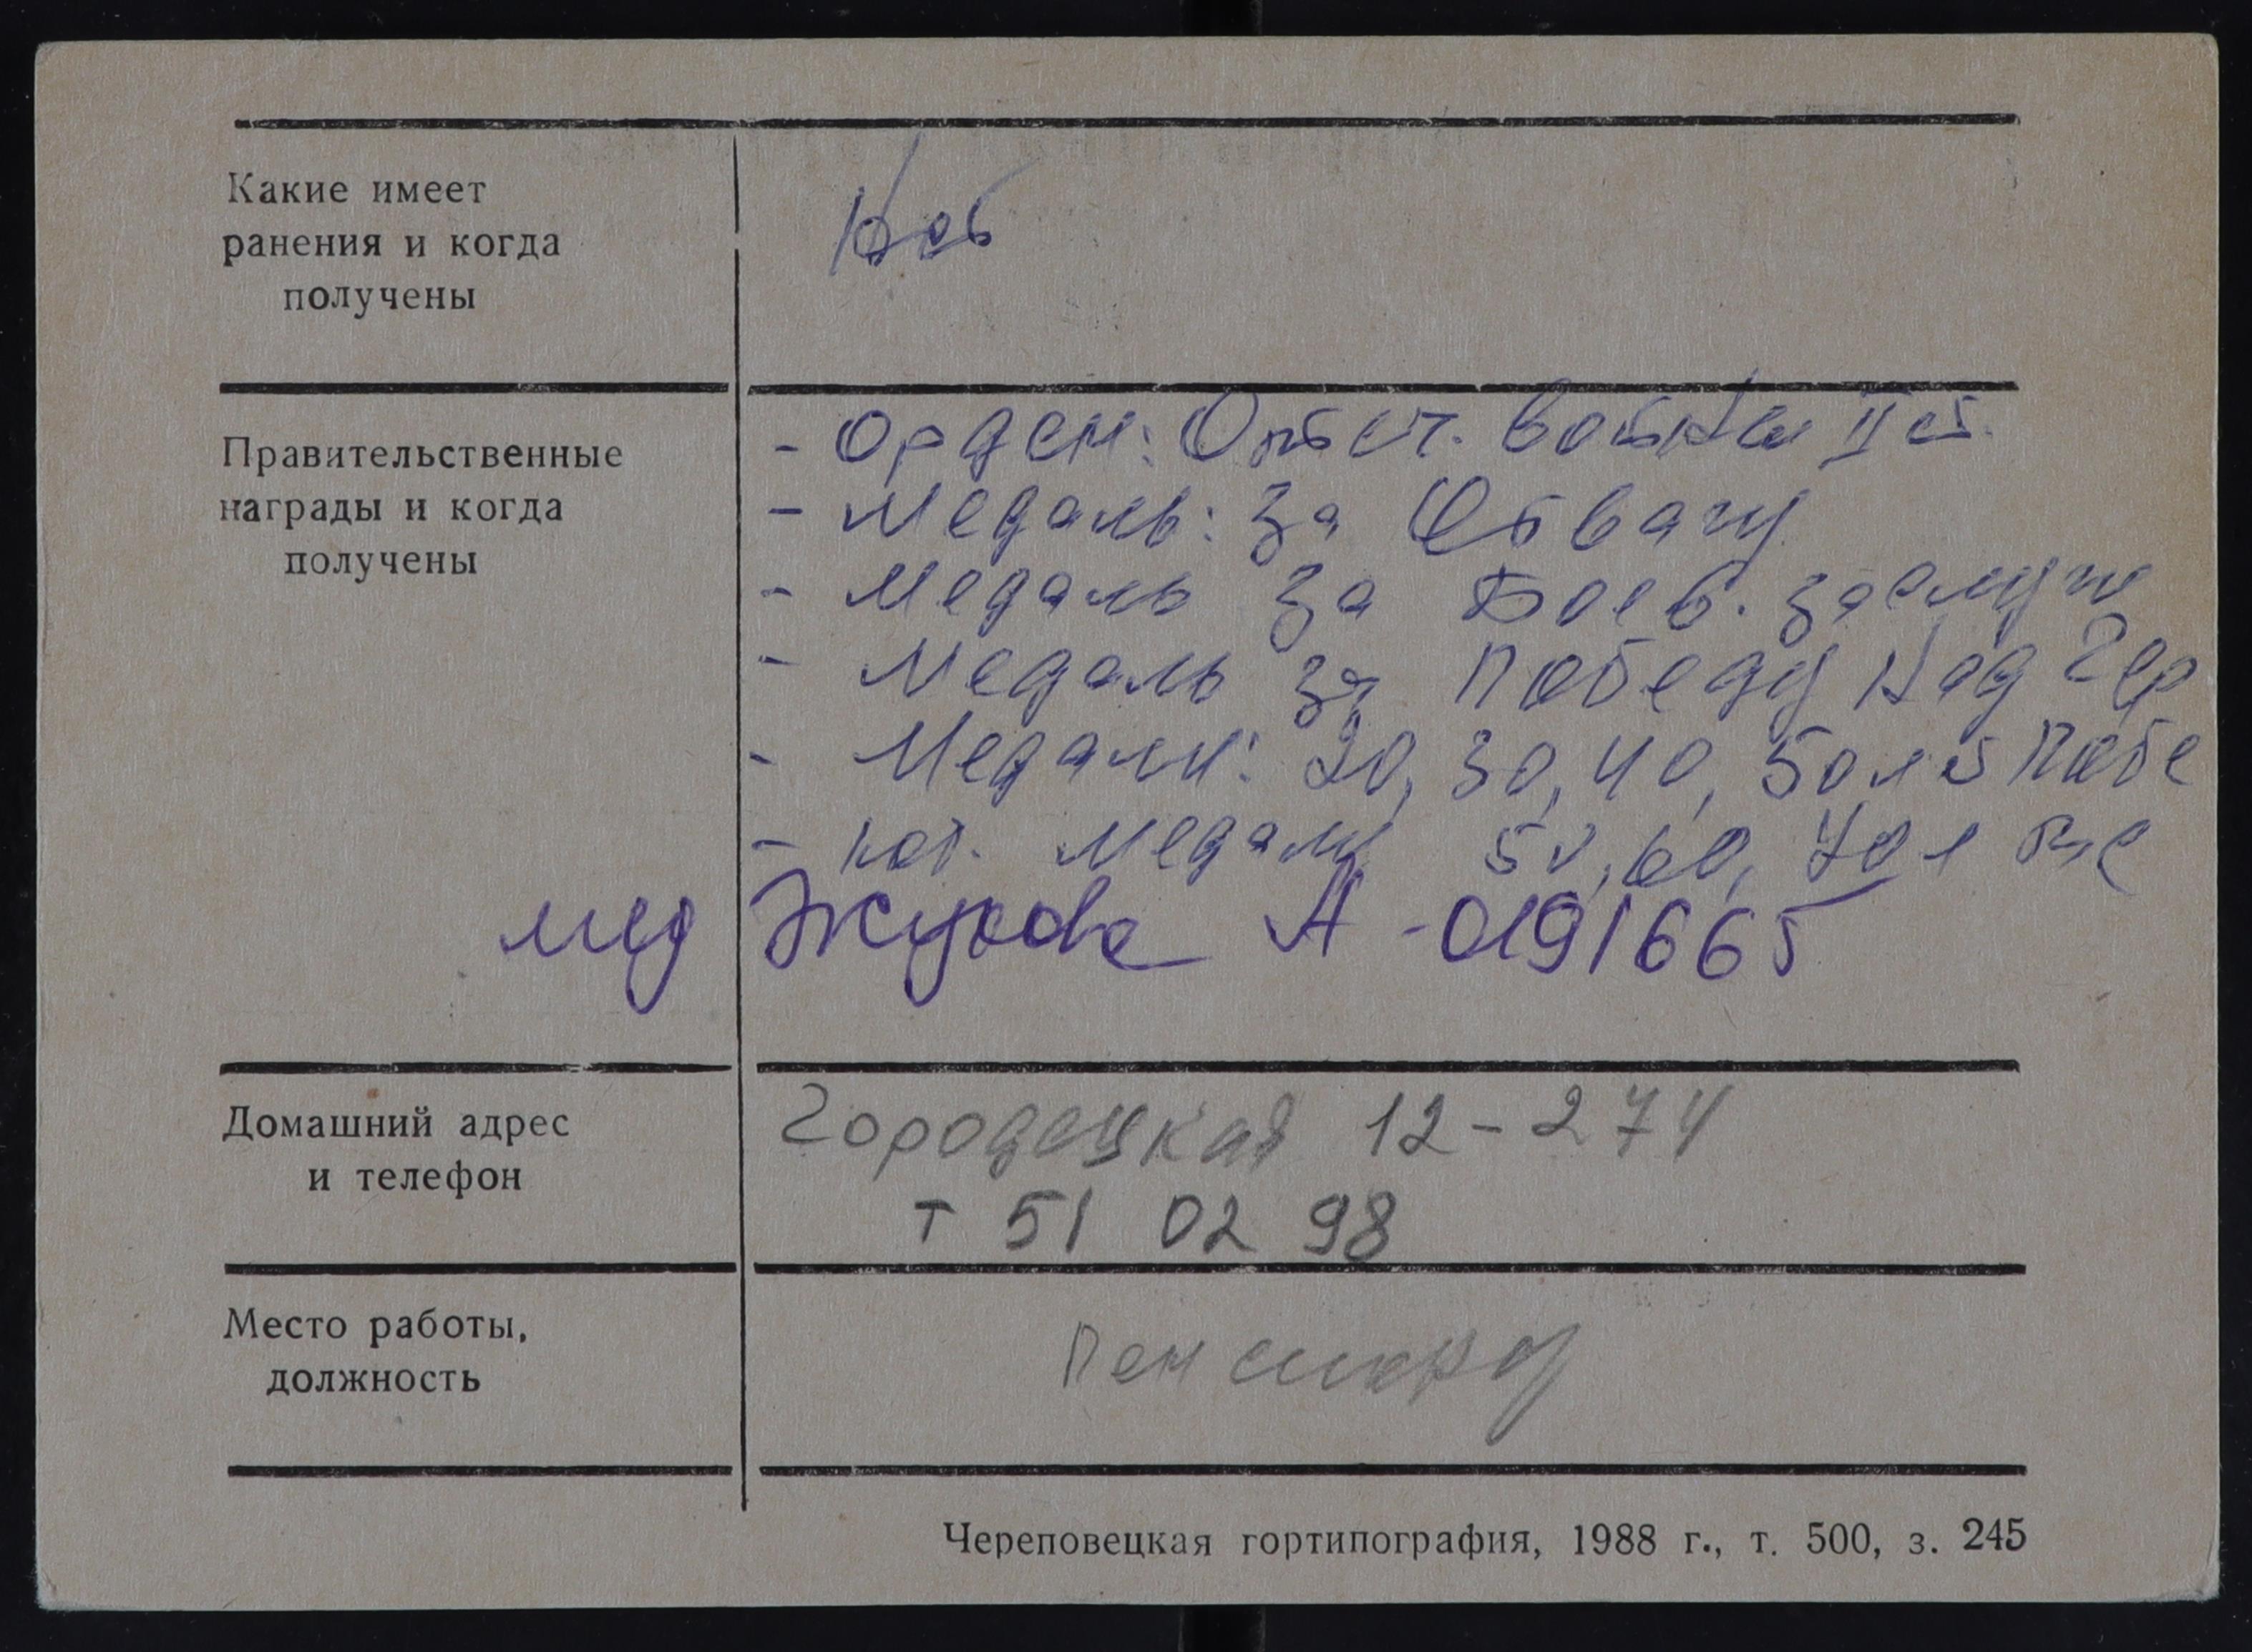 Какие имеет
ранения и когда
получены
Нет
Правительственные
награды и когда
получены
- Орден: Отеч. Войны II ст.
- Медаль: За Отвагу
- Медаль За Боев. заслуж
- Медаль за Победу Над Гер
- Медали: 20, 30, 40, 50 л Побе
- юб. медали 50, 60, 70 л
мед Жукова А - 0191665
Домашний адрес
и телефон
Городецкая 12-274
т 51 02 98
Место работы,
должность
Пенсионер
Череповецкая гортипография, 1988 г., т. 500, з. 245